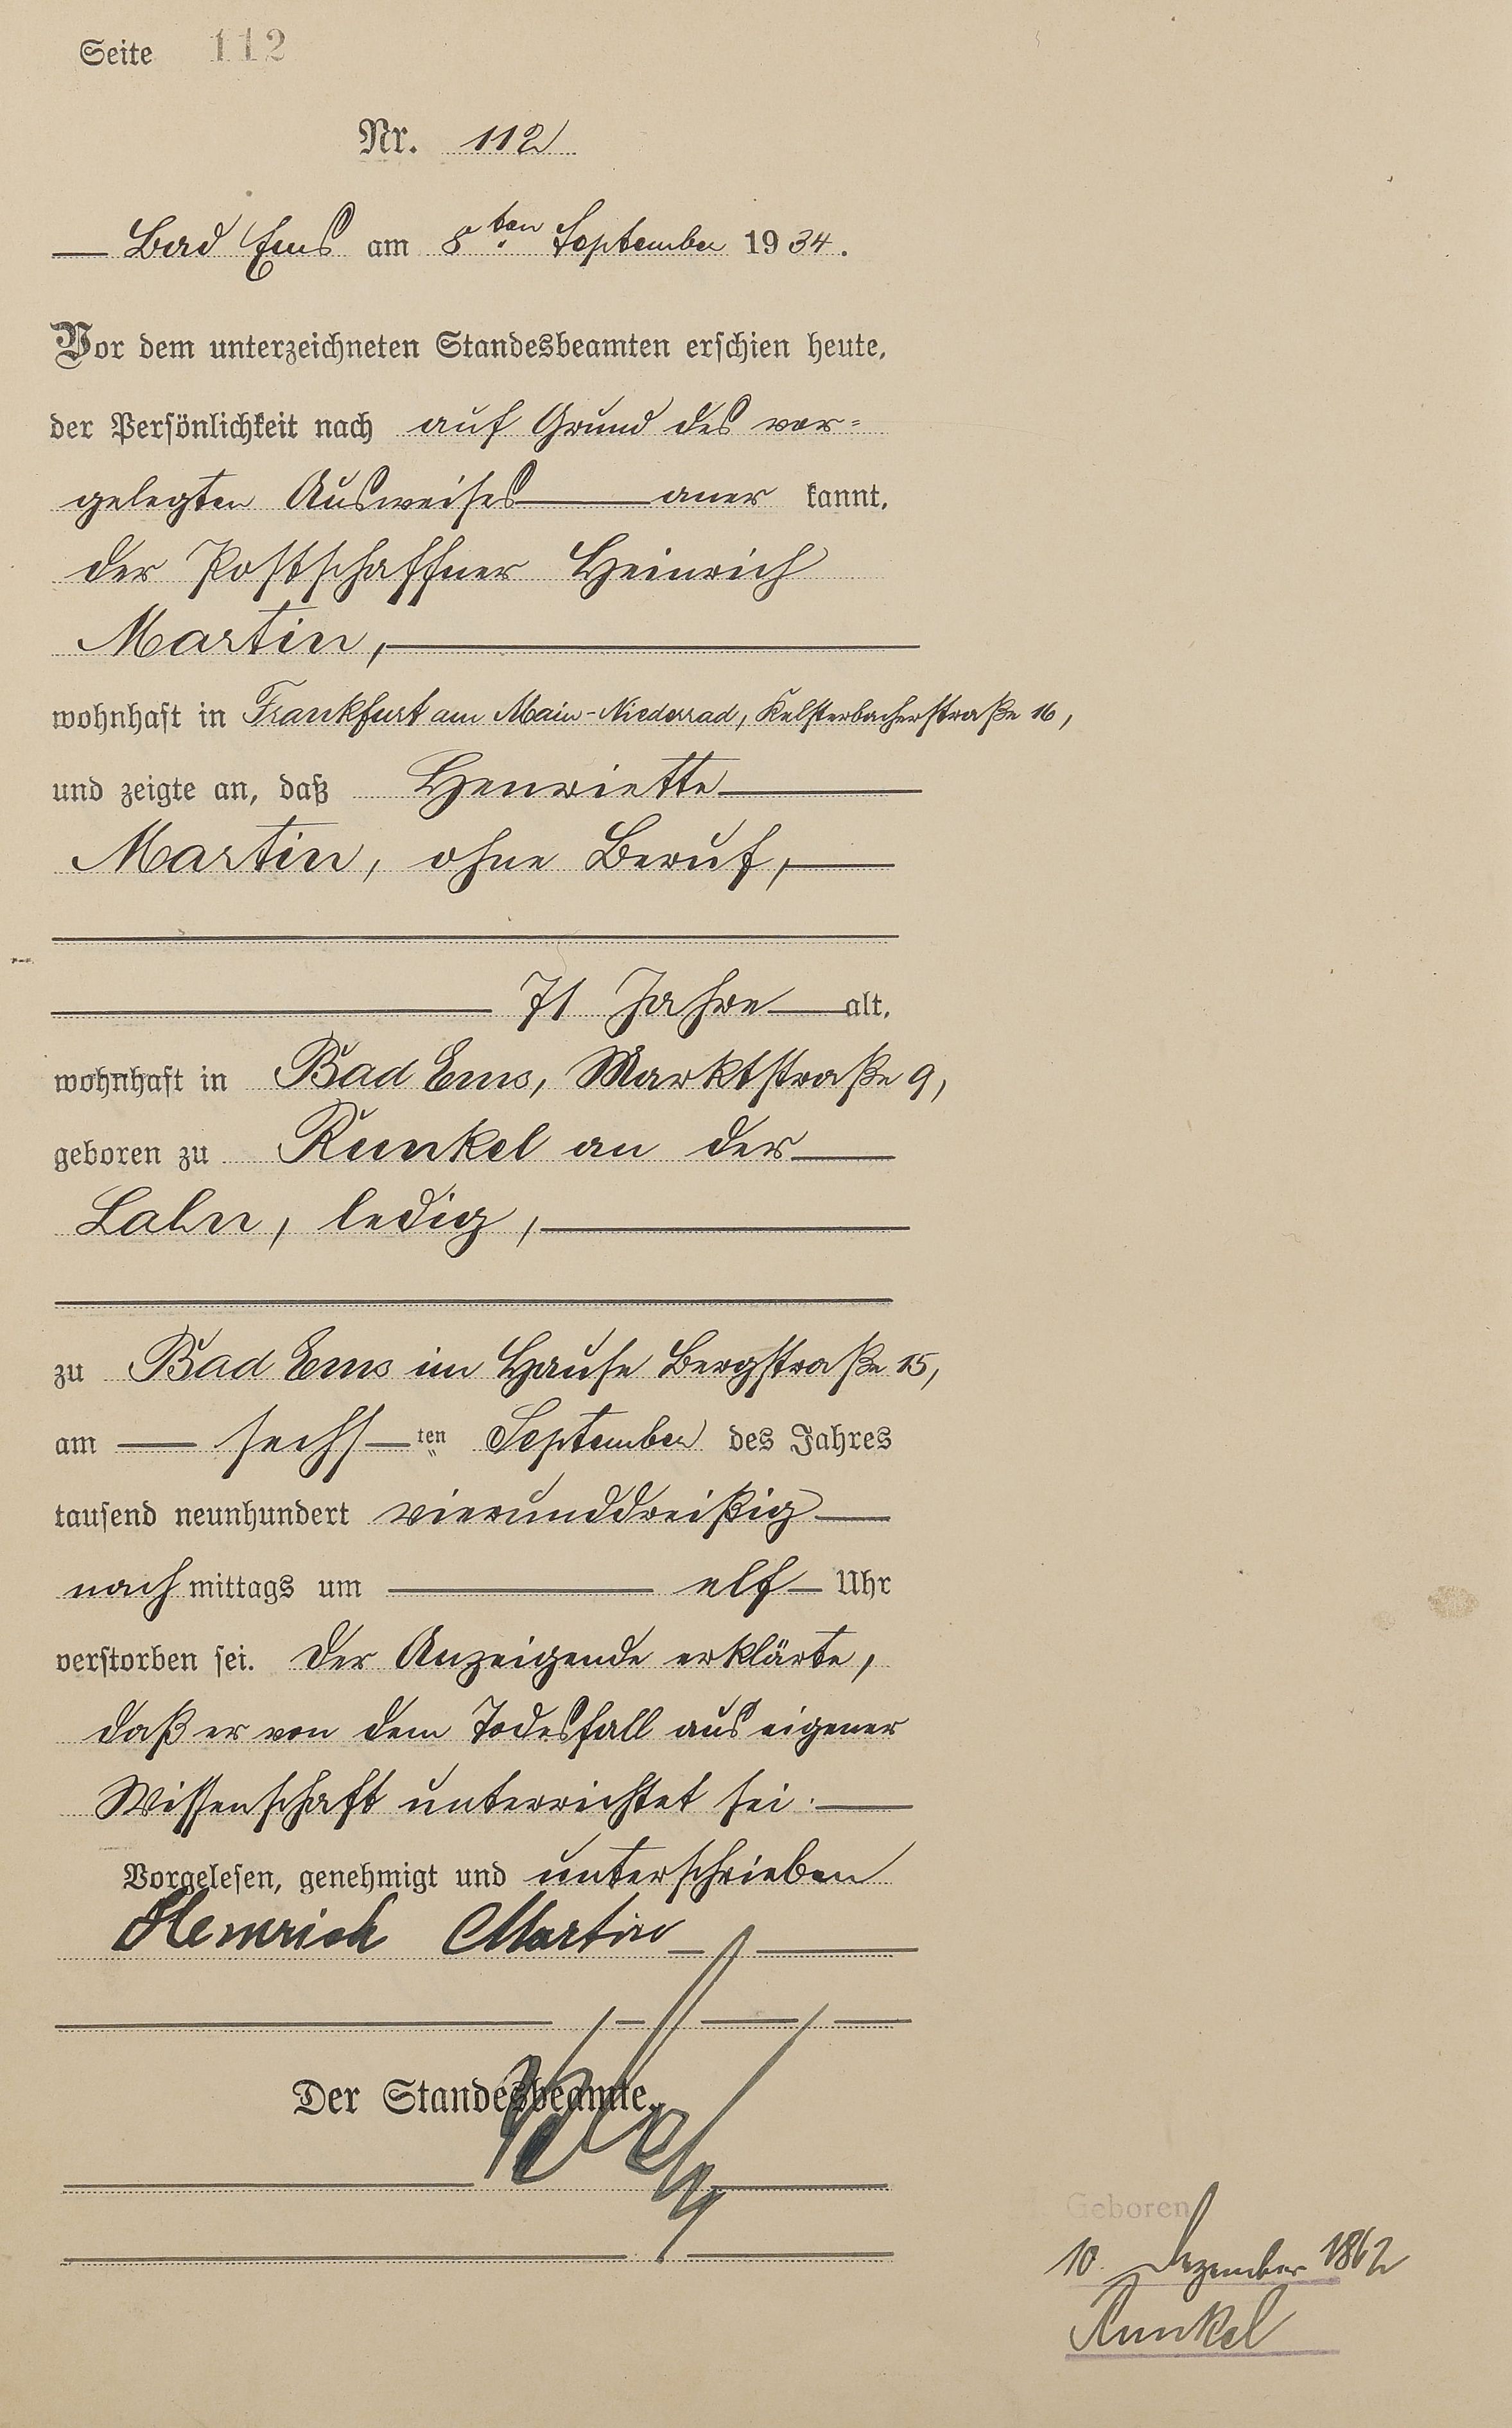 Seite 112
Nr. 112
Bad Ems am 8ten September 1934.
Vor dem unterzeichneten Standesbeamten erschien heute,
der Persönlichkeit nach auf Grund des vor=
gelegten Ausweises anerkannt,
der Postschaffner Heinrich
Martin,
wohnhaft in Frankfurt am Main-Niederrad, Kelsterbacherstraße 16,
und zeigte an, daß Henriette
Martin, ohne Beruf,
71 Jahre alt,
wohnhaft in Bad Ems, Marktstraße 9,
geboren zu Runkel an der
Lahn, ledig,
zu Bad Ems im Hause Bergstraße 15,
am sechsten September des Jahres
tausend neunhundert vierunddreißig
nachmittags um elf Uhr
verstorben sei. Der Anzeigende erklärte,
daß er von dem Todesfall aus eigener
Wissenschaft unterrichtet sei.
Vorgelesen, genehmigt und unterschrieben
Heinrich Martin
Der Standesbeamte.
Geboren
10. Dezember 1862
Runkel